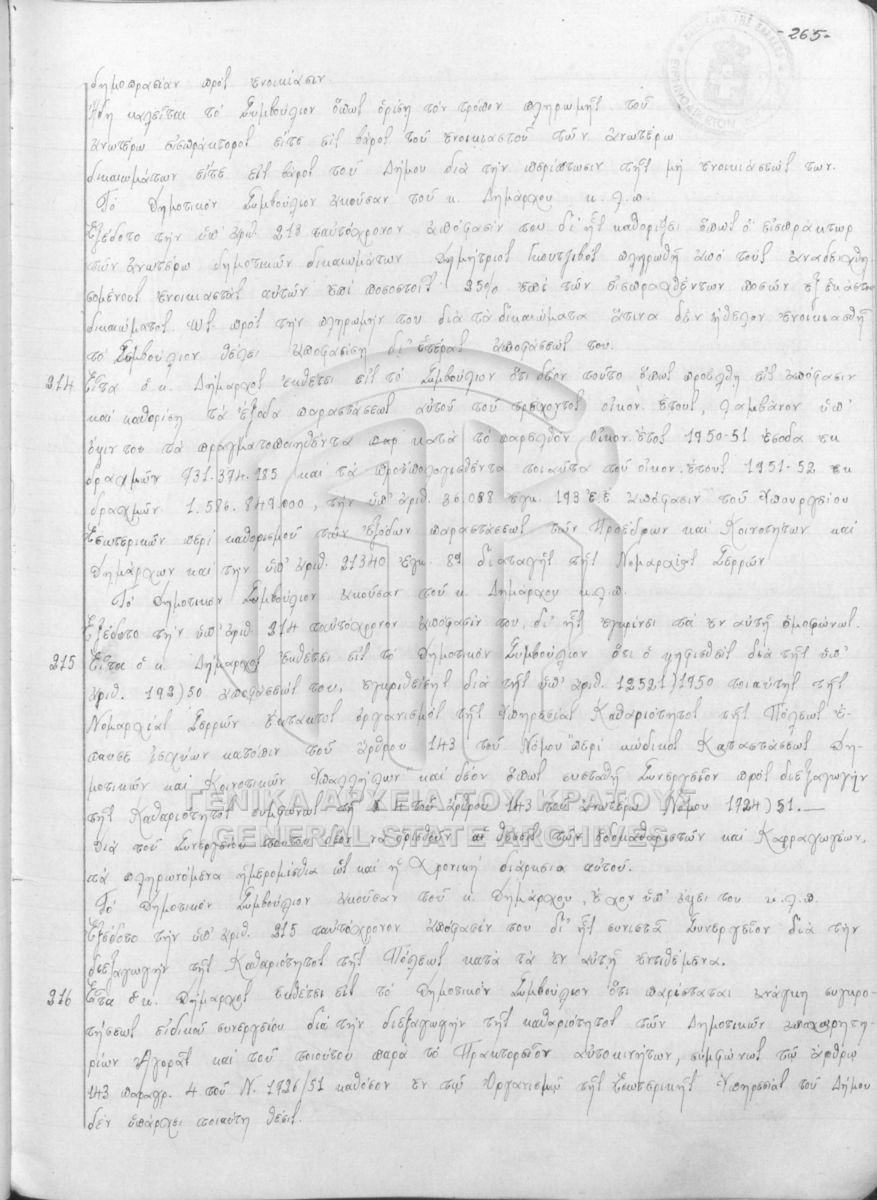 -265-
δημοπρασίαν πρὸς ἐνοικίασιν.
Ἤδη καλεῖται τὸ Συμβούλιον ὅπως ὁρίσῃ τὸν τρόπον πληρωμῆς τοῦ
ἀνωτέρω εἰσπράκτορος εἴτε εἰς βάρος τοῦ ἐνοικιαστοῦ τῶν ἀνωτέρω
δικαιωμάτων εἴτε εἰς βάρος τοῦ Δήμου διὰ τὴν περίπτωσιν τῆς μὴ ἐνοικιάσεώς των.
Τὸ Δημοτικὸν Συμβούλιον ἀκοῦσαν τοῦ κ. Δημάρχου κ.λ.π.
Ἐξέδοτο τὴν ὑπ' ἀριθ. 213 ταὐτόχρονον ἀπόφασίν του δι' ἧς καθορίζει ὅπως ὁ εἰσπράκτωρ
τῶν ἀνωτέρω δημοτικῶν δικαιωμάτων Δημήτριος πληρωθῇ ἀπὸ τοὺς ἀναδειχθη-
σομένους ἐνοικιαστὰς αὐτῶν ἐπὶ ποσοστοῖς 25% ἐπὶ τῶν εἰσπραχθέντων ποσῶν ἐξ ἑκάστου
δικαιώματος. Ὡς πρὸς τὴν πληρωμήν του διὰ τὰ δικαιώματα ἅτινα δὲν ἤθελον ἐνοικιασθῆ
τὸ Συμβούλιον θέλει ἀποφασίσῃ δι' ἑτέρας ἀποφάσεώς του.
214 Εἶτα ὁ κ. Δήμαρχος ἐκθέτει εἰς τὸ Συμβούλιον ὅτι δέον τοῦτο ὅπως προέλθῃ εἰς ἀπόφασιν
καὶ καθορίσῃ τὰ ἔξοδα παραστάσεως αὐτοῦ τοῦ τρέχοντος οἰκον. ἔτους, λαμβάνον ὑπ'
ὄψιν του τὰ πραγματοποιηθέντα παρ' κατὰ τὸ παρελθὸν οἰκον. ἔτος 1950-51 ἔσοδα ἐκ
δραχμῶν 931.374.185 καὶ τὰ προϋπολογισθέντα τοιαῦτα τοῦ οἰκον. ἔτους 1951-52 ἐκ
δραχμῶν 1.586.849.000, τὴν ὑπ' ἀριθ. 36.088 ἐγκ. 193 ἐ.ἔ. ἀπόφασιν τοῦ Ὑπουργείου
Ἐσωτερικῶν περὶ καθορισμοῦ τῶν ἐξόδων παραστάσεως τῶν Προέδρων καὶ Κοινοτήτων καὶ
Δημάρχων καὶ τὴν ὑπ' ἀριθ. 21340 ἐγκ. 89 διαταγῆς τῆς Νομαρχίας Σερρῶν
Τὸ Δημοτικὸν Συμβούλιον ἀκοῦσαν τοῦ κ. Δημάρχου κ.λ.π.
Ἐξέδοτο τὴν ὑπ' ἀριθ. 214 ταὐτόχρονον ἀπόφασίν του, δι' ἧς ἐγκρίνει τὰ ἐν αὐτῇ ὁμοφώνως.
215 Εἶτα ὁ κ. Δήμαρχος ἐκθέτει εἰς τὸ Δημοτικὸν Συμβούλιον ὅτι ὁ ψηφισθεὶς διὰ τῆς ὑπ'
ἀριθ. 192)50 ἀποφάσεώς του, ἐγκριθείσης διὰ τῆς ὑπ' ἀριθ. 12521)1950 τοιαύτης τῆς
Νομαρχίας Σερρῶν ἔκτακτος ὀργανισμὸς τῆς Ὑπηρεσίας Καθαριότητος τῆς Πόλεως ἔ-
παυσε ἰσχύων κατόπιν τοῦ ἄρθρου 143 τοῦ Νόμου "περὶ κώδικος Καταστάσεως Δη-
μοτικῶν καὶ Κοινοτικῶν Ὑπαλλήλων" καὶ δέον ὅπως συσταθῆ Συνεργεῖον πρὸς διεξαγωγὴν
τῆς Καθαριότητος συμφώνως τῇ § 4 τοῦ ἄρθρου 143 τοῦ ἀνωτέρω Νόμου 1724)51.—
Διὰ τοῦ Συνεργείου τούτου δέον νὰ ὁρισθοῦν αἱ θέσεις τῶν ὁδοκαθαριστῶν καὶ Καρραγωγέων,
τὰ πληρωνόμενα ἡμερομίσθια ὡς καὶ ἡ χρονικὴ διάρκεια αὐτοῦ.
Τὸ Δημοτικὸν Συμβούλιον ἀκοῦσαν τοῦ κ. Δημάρχου, ἔχον ὑπ' ὄψει του κ.λ.π.
Ἐξέδοτο τὴν ὑπ' ἀριθ. 215 ταὐτόχρονον ἀπόφασίν του δι' ἧς συνιστᾶ Συνεργεῖον διὰ τὴν
διεξαγωγὴν τῆς Καθαριότητος τῆς Πόλεως κατὰ τὰ ἐν αὐτῇ ἐντιθέμενα.
216 Εἶτα ὁ κ. Δήμαρχος ἐκθέτει εἰς τὸ Δημοτικὸν Συμβούλιον ὅτι παρίσταται ἀνάγκη συγκρο-
τήσεως εἰδικοῦ συνεργείου διὰ τὴν διεξαγωγὴν τῆς καθαριότητος τῶν Δημοτικῶν ἀποχωρητη-
ρίων Ἀγορᾶς καὶ τοῦ τοιούτου παρὰ τὸ Πρακτορεῖον αὐτοκινήτων, συμφώνως τῷ ἄρθρῳ
143 παραγρ. 4 τοῦ Ν. 1726/51 καθόσον ἐν τῷ Ὀργανισμῷ τῆς Ἐσωτερικῆς Ὑπηρεσίας τοῦ Δήμου
δὲν ὑπάρχει τοιαύτη θέσις.
ΓΕΝΙΚΑ ΑΡΧΕΙΑ ΤΟΥ ΚΡΑΤΟΥΣ
GENERAL STATE ARCHIVES